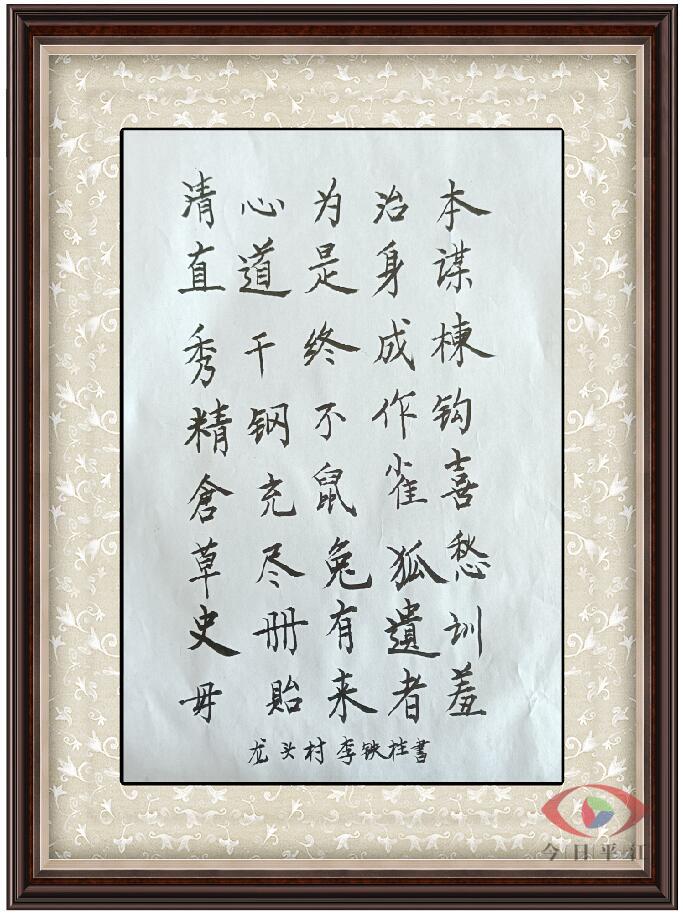 清心为治本
直道是身谋
秀干终成栋
精钢不作钩
倉充鼠雀喜
草尽兔狐愁
史册有遺训
毋贻来者羞
龙头村李铁柱書
今日平江